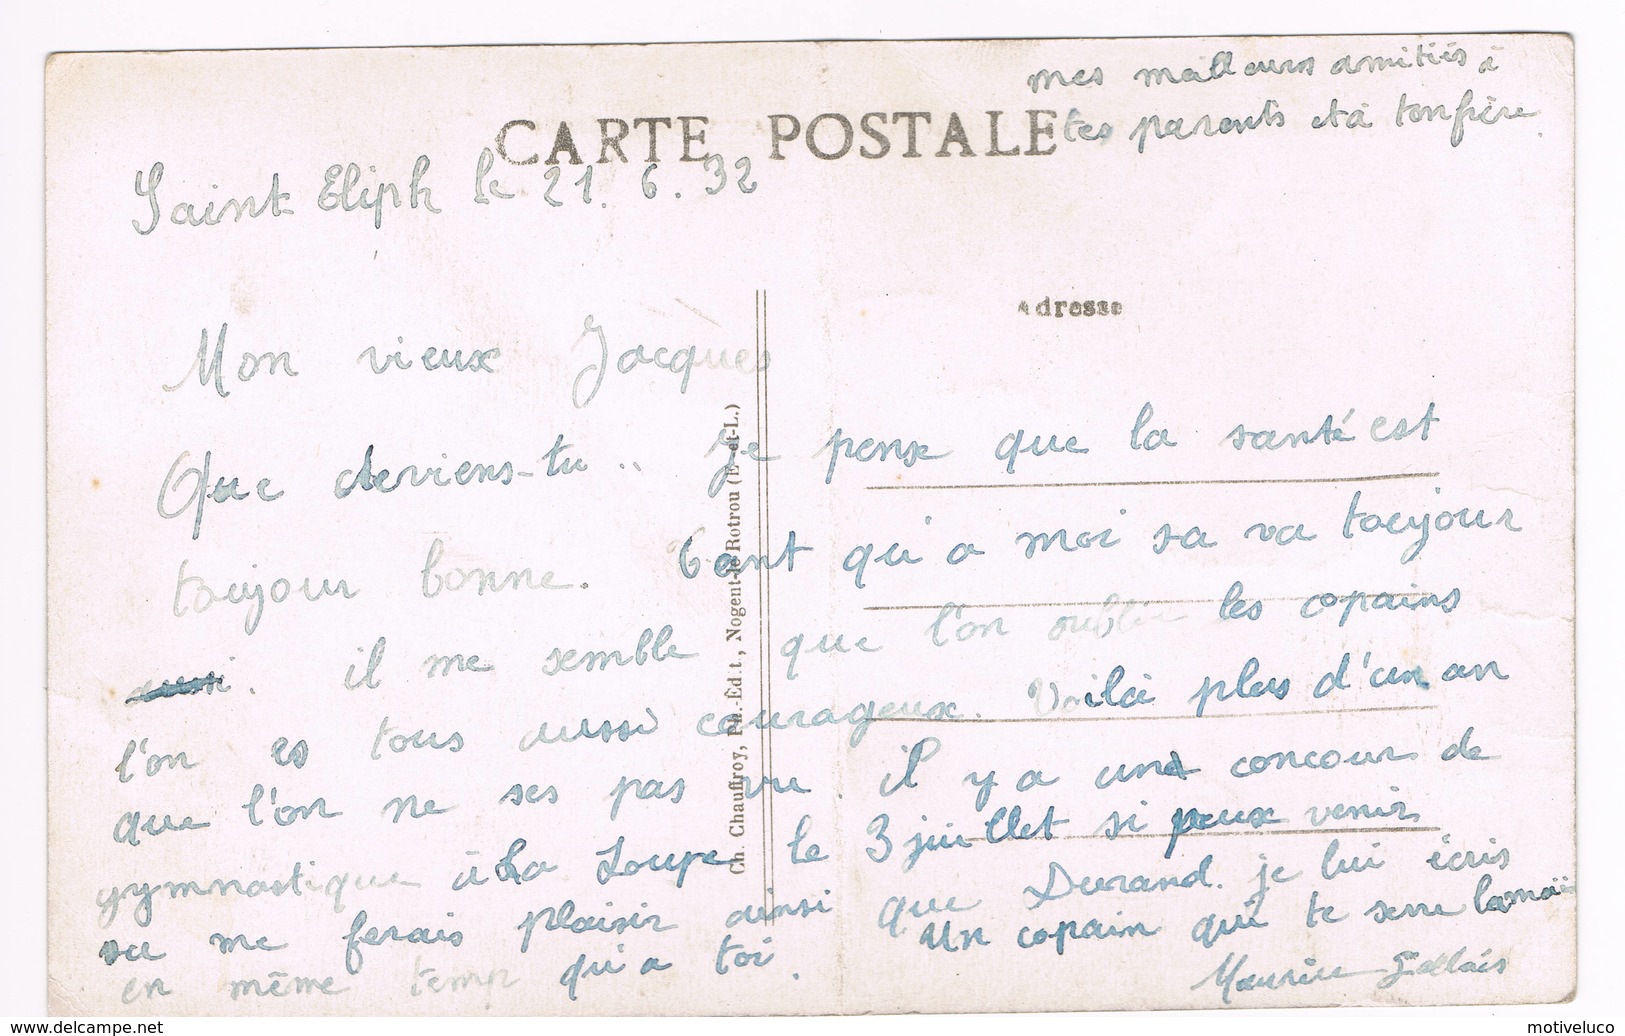 mes meilleurs amitiés à
CARTE POSTALE
tes parents et à ton frère.
Saint Eliph le 21.6.32
Adresse
Mon vieux Jacques
Que deviens-tu .. Je pense que la santé est
toujour bonne. Tant qu'i a moi sa va toujour
aussi. il me semble que l'on oublie les copains
l'on es tous aussi courageux. Voilà plus d'un an
que l'on ne ses pas vu. il y a un concour de
gymnastique à La Loupe le 3 juillet si peux venir
sa me ferais plaisir ainsi que Durand. je lui écris
en même temp qu'i a toi.
Un copain qui te serre lamain
Maurice Gallais
Ch. Chauffroy, Ph.-Édit., Nogent-le-Rotrou (E.-et-L.)
www.delcampe.net
motiveluco